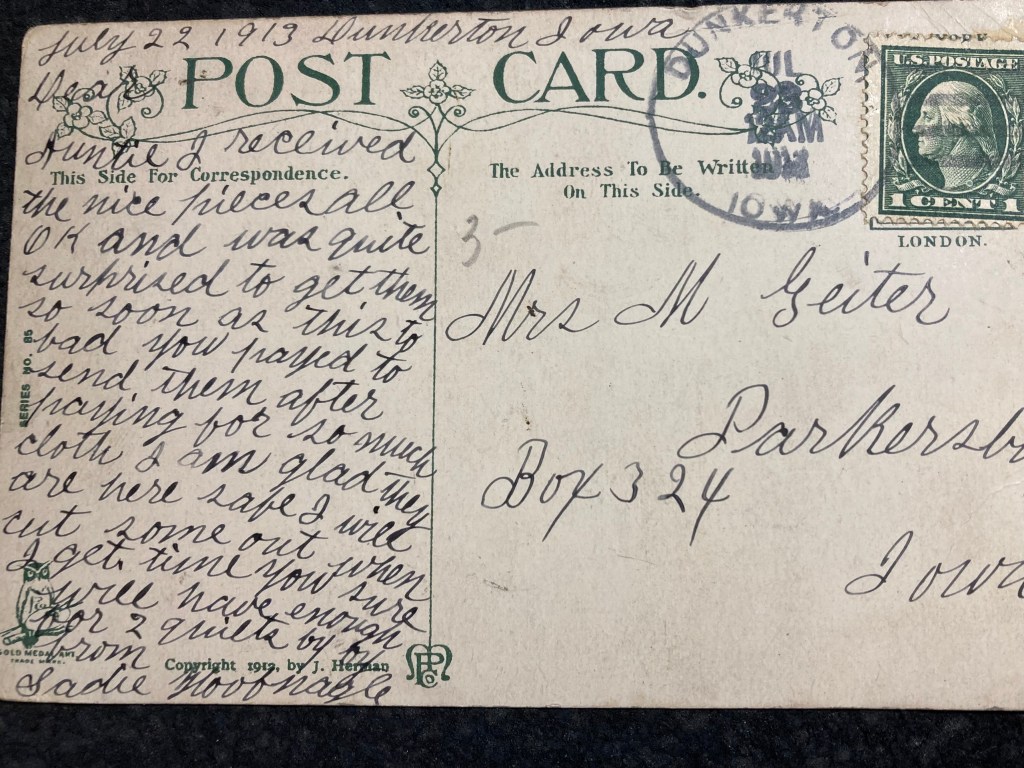 July 22 1913 Dunkerton Iowa
Dear
POST CARD.
Auntie I received
This Side For Correspondence.
the nice pieces all
OK and was quite
surprised to get them
so soon as this to
bad you payed to
send them after
paying for so much
cloth I am glad they
are here safe I will
cut some out when
I get time you sure
will have enough
for 2 quilts by by
from
Sadie Hoofnagle
SERIES NO. 85
GOLD MEDAL ART
TRADE MARK.
Copyright 1912, by J. Herman
The Address To Be Written
On This Side.
DUNKERTON
JUL
23
AM
IOWA
U.S. POSTAGE
1 CENT 1
LONDON.
3-
Mrs M Geiter
Parkersb
Box 324
Iowa